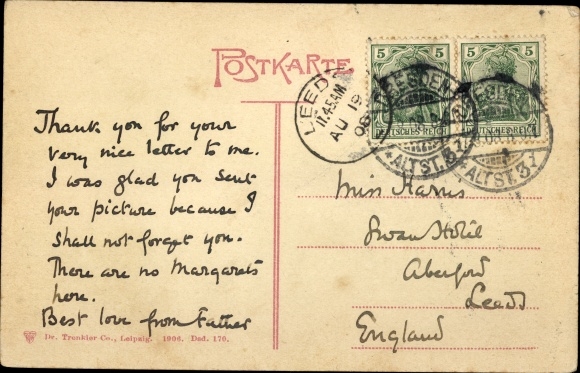 POSTKARTE
LEEDS
11.45AM
AU 19
06
5 5
5 5
DEUTSCHES REICH
DEUTSCHES REICH
DRESDEN
* ALTST. 31
ALTST. 31
Thank you for your
very nice letter to me.
I was glad you sent
your picture because I
shall not forget you.
There are no Margarets
here.
Best love from Father
Miss Harris
Swan Hotel
Aberford
Leeds
England
Dr. Trenkler Co., Leipzig. 1906. Dsd. 170.